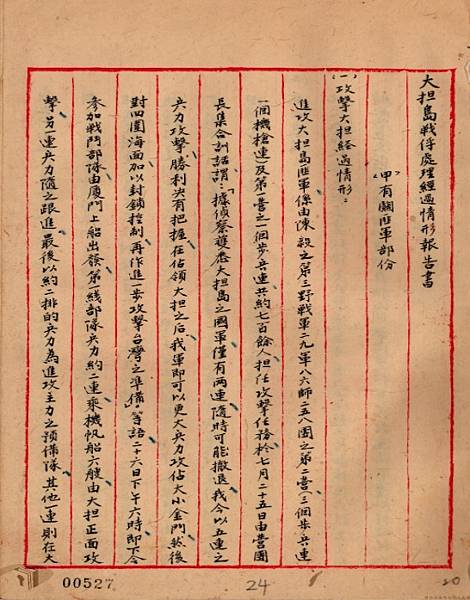 大担島戰俘處理經過情形報告書
(甲)有關匪軍部份
(一)攻擊大担經過情形:
進攻大担島匪軍係由陳毅之第三野戰軍二九軍八六師二五八團之第二營(三個步兵連
一個機槍連)及第一營之一個步兵連共約七百餘人担任攻擊任務於七月二十五日由營團
長集合訓話謂:「據偵察獲悉大担島之國軍僅有兩連隨時可能撤退我今以五連之
兵力攻擊勝利決有把握在佔領大担之后我軍即可以更大兵力攻佔大小金門然後
對四圍海面加以封鎖控制再作進一步攻擊台灣之準備」等語二十六日下午六時即下令
參加戰鬥部隊由廈門上船出發第一线部隊兵力約二連乘機帆船六艘由大担正面攻
擊另一連兵力隨之跟進最後以約二排的兵力為進攻主力之預備隊其他一連則在大
00527
24
20